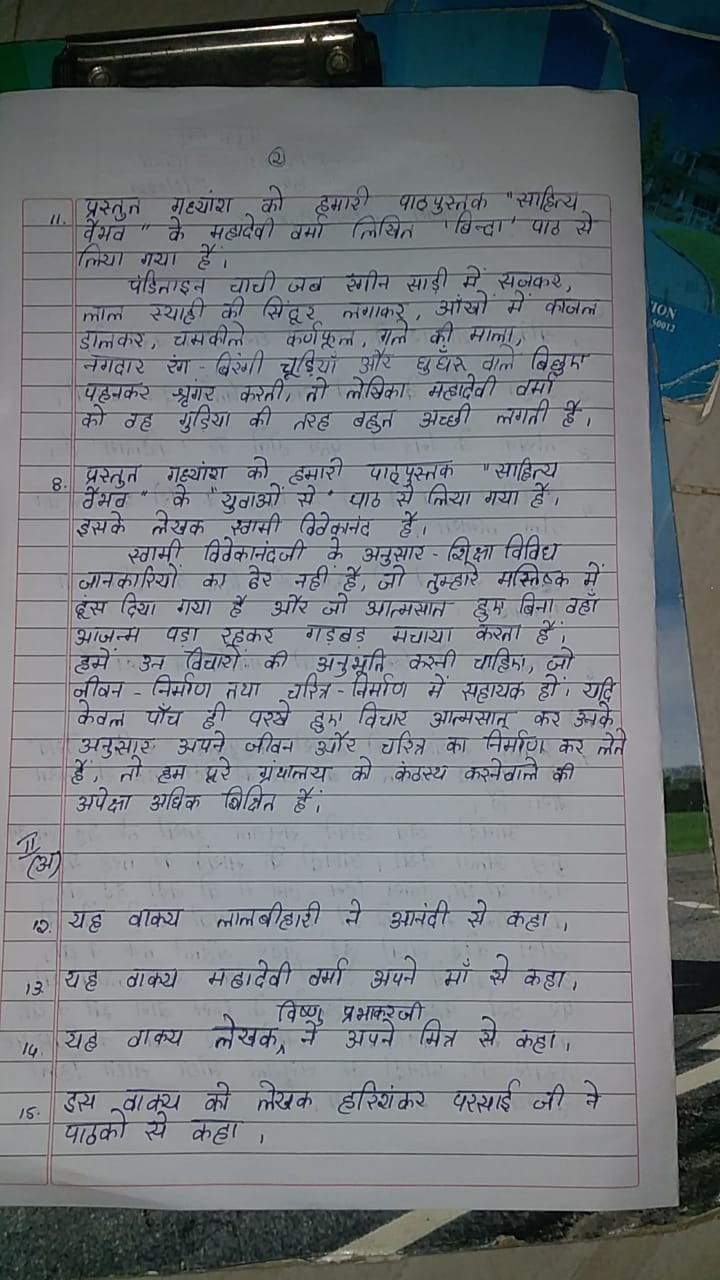 २
11. प्रस्तुत गद्यांश को हमारी पाठपुस्तक "साहित्य
वैभव" के महादेवी वर्मा लिखित 'बिन्दा' पाठ से
लिया गया है।
पंडिताइन चाची जब रंगीन साड़ी में सजकर,
लाल स्याही की सिंदूर लगाकर, आँखों में काजल
डालकर, चमकीले कर्णफूल, गले की माला,
नगदार रंग-बिरंगी चूड़ियाँ और घुँघरू वाले बिछुए
पहनकर श्रृंगर करती, तो लेखिका महादेवी वर्मा
को वह गुड़िया की तरह बहुत अच्छी लगती है।
8. प्रस्तुत गद्यांश को हमारी पाठ्पुस्तक "साहित्य
वैभव" के "युवाओं से" पाठ से लिया गया है।
इसके लेखक स्वामी विवेकानंद है।
स्वामी विवेकानंदजी के अनुसार - शिक्षा विविध
जानकारियों का ढेर नहीं है, जो तुम्हारे मस्तिष्क में
ठूंस दिया गया है और जो आत्मसात हुए बिना वहाँ
आजन्म पड़ा रहकर गड़बड़ मचाया करता है।
हमें उन विचारों की अनुभूति करनी चाहिए, जो
जीवन-निर्माण तथा चरित्र-निर्माण में सहायक हों। यदि
केवल पाँच ही परखे हुए विचार आत्मसात् कर उनके
अनुसार अपने जीवन और चरित्र का निर्माण कर लेते
हैं, तो हम पूरे ग्रंथालय को कंठस्थ करनेवाले की
अपेक्षा अधिक शिक्षित हैं।
II
(अ)
12. यह वाक्य लालबीहारी ने आनंदी से कहा।
13. यह वाक्य महादेवी वर्मा अपने माँ से कहा।
विष्णु प्रभाकरजी
14. यह वाक्य लेखक ने अपने मित्र से कहा।
15. इस वाक्य को लेखक हरिशंकर परसाई जी ने
पाठकों से कहा।